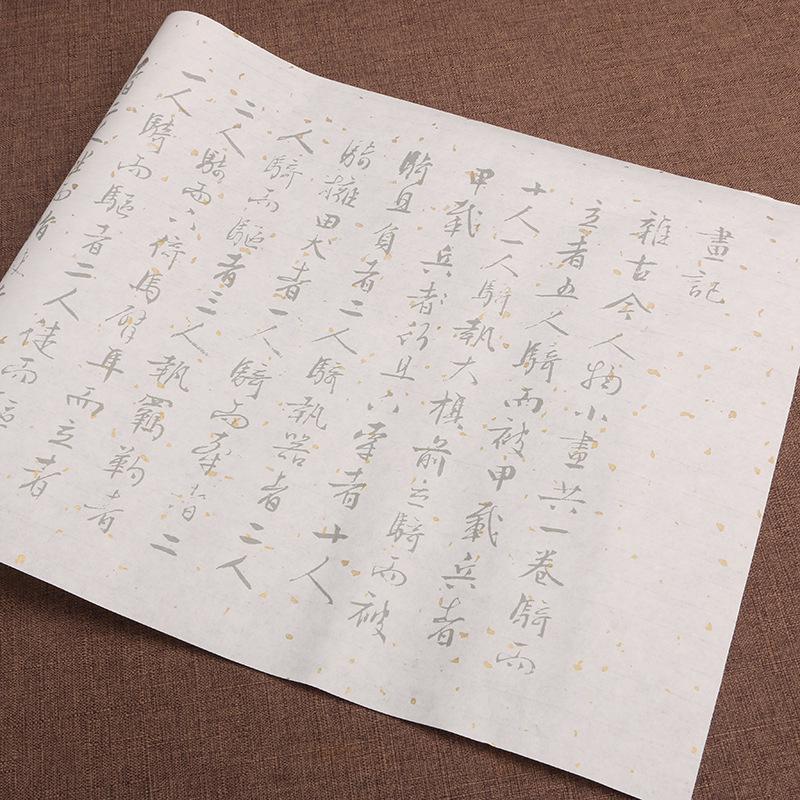 畫記
雜古今人物小畫共一卷騎而
立者五人騎而被甲載兵者
十人一人騎執大旗前立騎而被
甲載兵者行且下牽者十人
騎且負者二人騎執器者二人
騎擁田犬者一人騎而牽者二
人騎而驅者三人執羈靮者
二人騎而下倚馬臂隼而立者
一人騎而驅者二人徒而驅
者二人坐而指使